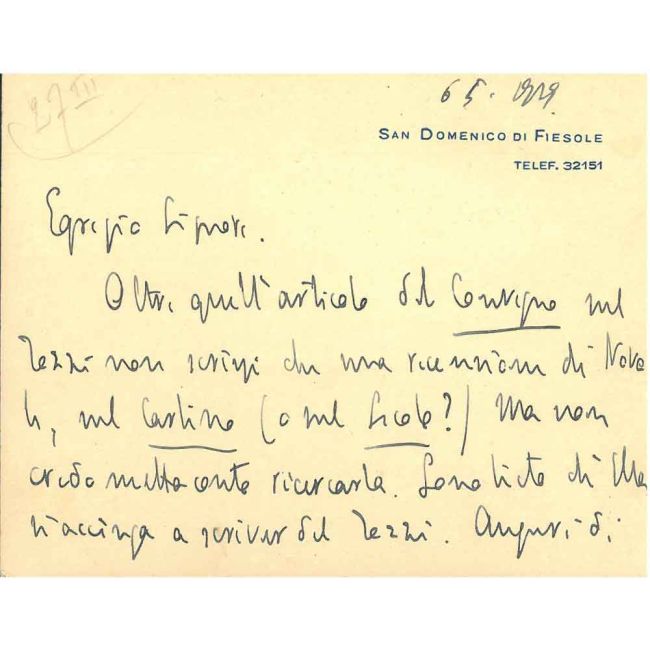 27 III
6 5. 1929
SAN DOMENICO DI FIESOLE
TELEF. 32151
Egregio Signore.
Oltre quell'articolo del Convegno sul
Tozzi non scrissi che una recensione di Novale
, sul Carlino (o sul Secolo?) Ma non
credo metta conto ricercarla. Sono lieto di
s'accinga a scriver del Tozzi. Auguri di